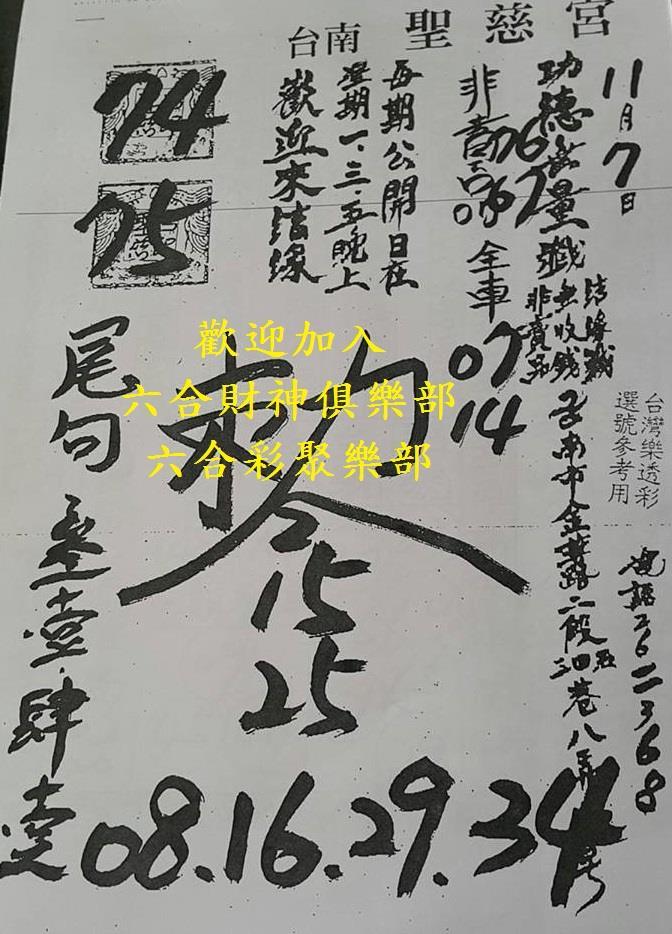 台南 聖慈宮
11月7日
功德無量
結緣籤
無收錢
非賣品
台灣樂透彩
選號參考用
全車
07
14
每期公開日在
星期一、三、五晚上
歡迎來結緣
74
75
歡迎加入
六合財神俱樂部
六合彩聚樂部
2
15
25
尾句
壹肆壹
台南市金華路二段
巷八弄
電話2622368
08.16.29.34